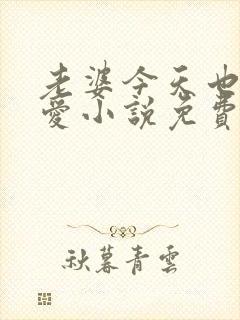 老婆今天也
愛小說免費
秋暮青雲